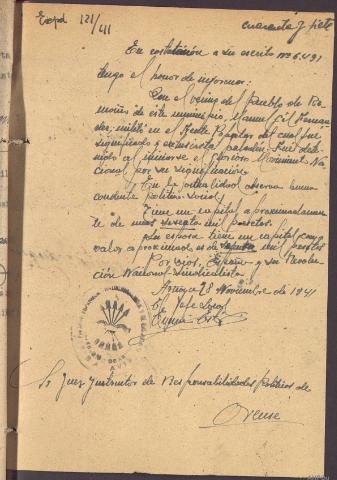 Exped 121/411
cuarenta y siete
En contestación a su escrito nº 6.491
tengo el honor de informar:
Que el vecino del pueblo de
de este municipio, Manuel Gil
militó en el Frente Popular del cual fué
significado y entusiasta paladín. Fué dete-
nido al iniciarse el Glorioso Movimiento Na-
cional por ser significación
En la actualidad observa buena
conducta político-social
Tiene un capital aproximadamen-
te de unas sesenta mil pesetas.
Su esposa tiene un capital cuyo
valor aproximado es de mil pesetas
Por Dios, España y su Revolu-
ción Nacional-Sindicalista
28 Noviembre de 1941
El Jefe Local
Sr Juez Instructor de Responsabilidades Políticas de
Orense